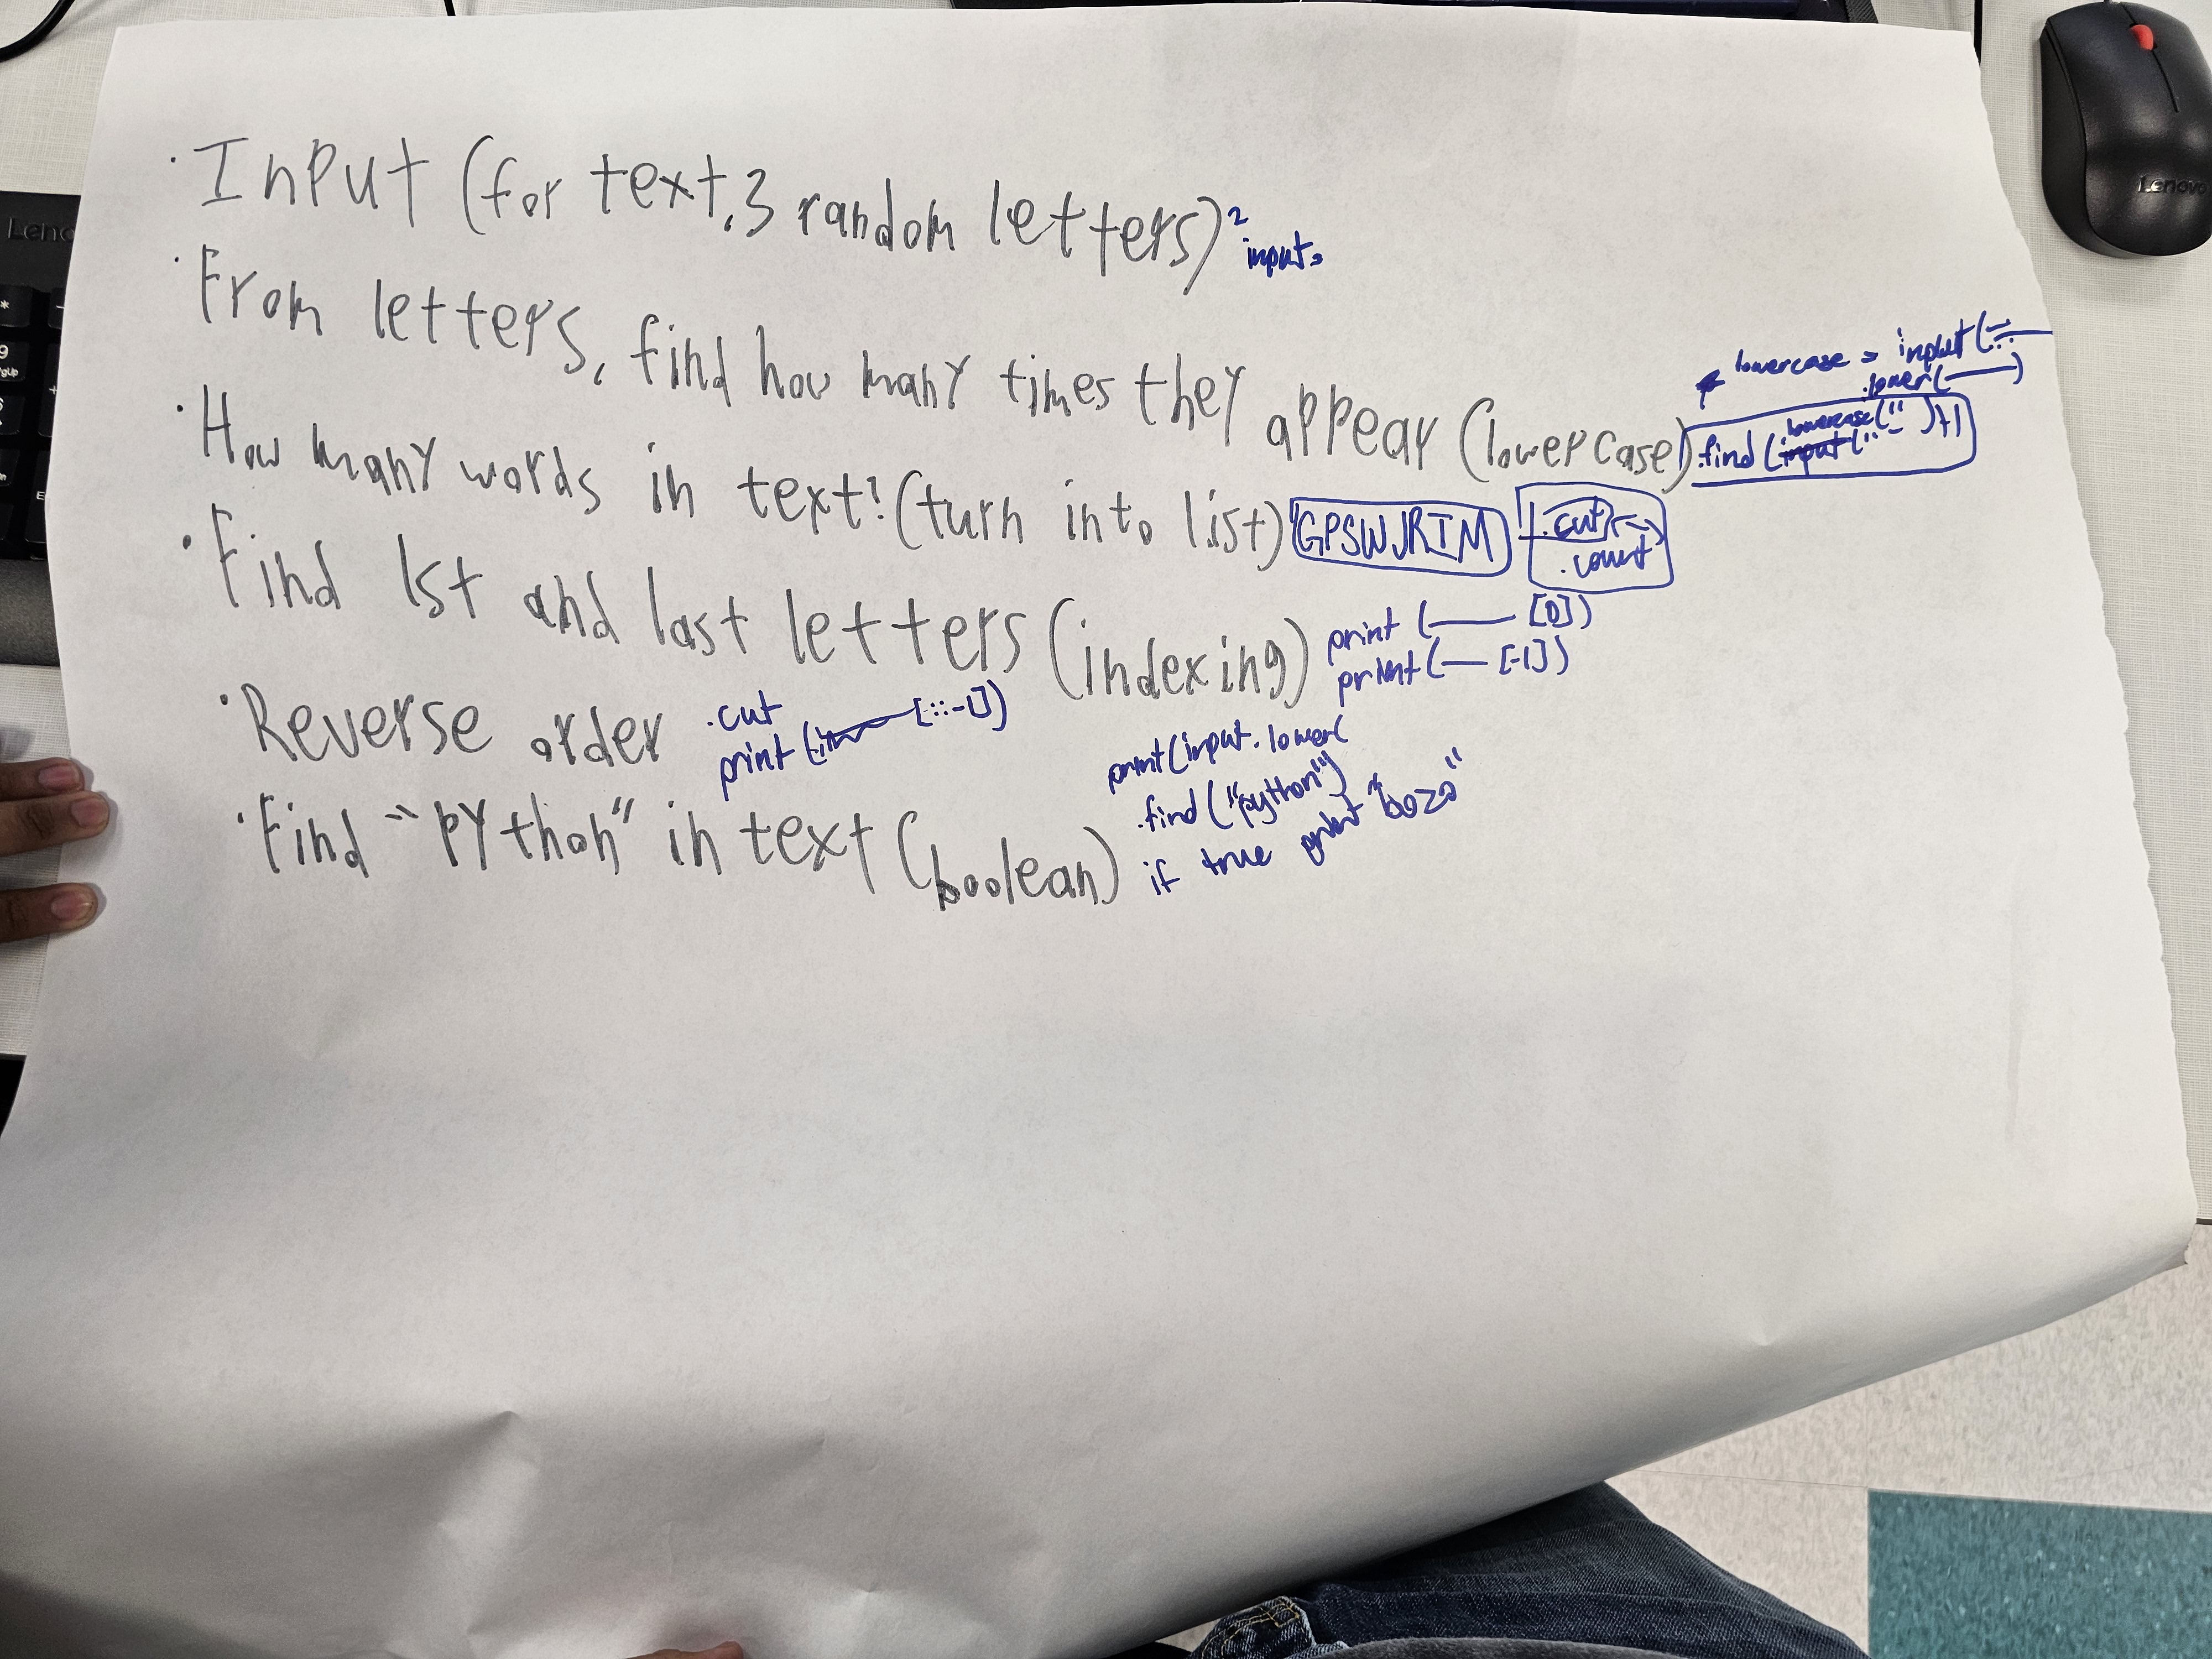 · Input (for text, 3 random letters) 2 inputs
· From letters, find how many times they appear (lowercase)
lowercase = input(
.lower( )
.find (lowercase(" ")+1
· How many words in text? (turn into list) GPSWJRTM .cut
.count
· Find 1st and last letters (indexing) print ( [0])
print ( [-1])
· Reverse order .cut
print ( [::-1])
· Find "python" in text (boolean) print(input.lower(
.find("python")
if true print "bozo"
Lenovo